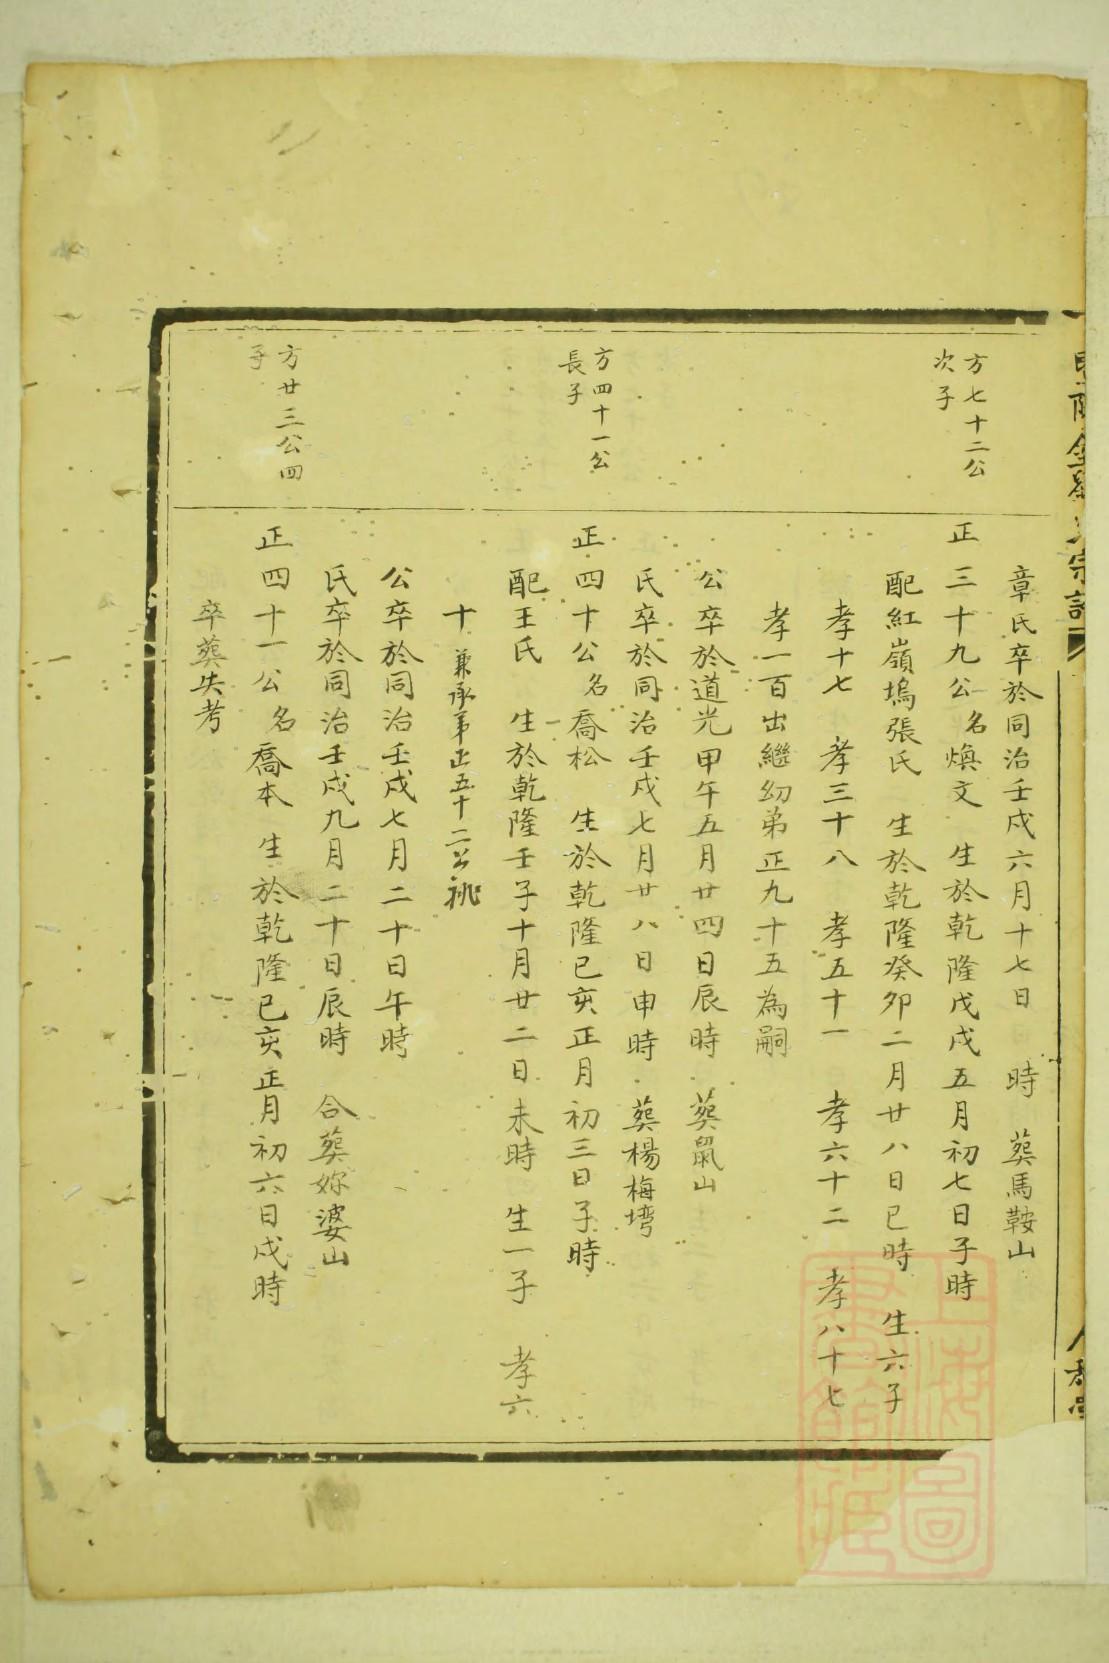 章氏卒於同治壬戌六月十七日 時 葬馬鞍山
方七十二公
次子
正三十九公名煥文 生於乾隆戊戌五月初七日子時
配紅嶺塢張氏 生於乾隆癸卯二月廿八日巳時 生六子
孝十七 孝三十八 孝五十一 孝六十二 孝八十七
孝一百出繼幼弟正九十五為嗣
公卒於道光甲午五月廿四日辰時 葬鼠山
氏卒於同治壬戌七月廿八日申時 葬楊梅塆
方四十一公
長子
正四十公名喬松 生於乾隆己亥正月初三日子時
配王氏 生於乾隆壬子十月廿二日未時 生一子 孝六
十 兼承弟正五十二公祧
公卒於同治壬戌七月二十日午時
氏卒於同治壬戌九月二十日辰時 合葬婆山
方廿三公四
子
正四十一公名喬本 生於乾隆己亥正月初六日戌時
卒葬失考
宗譜
上海圖書館藏